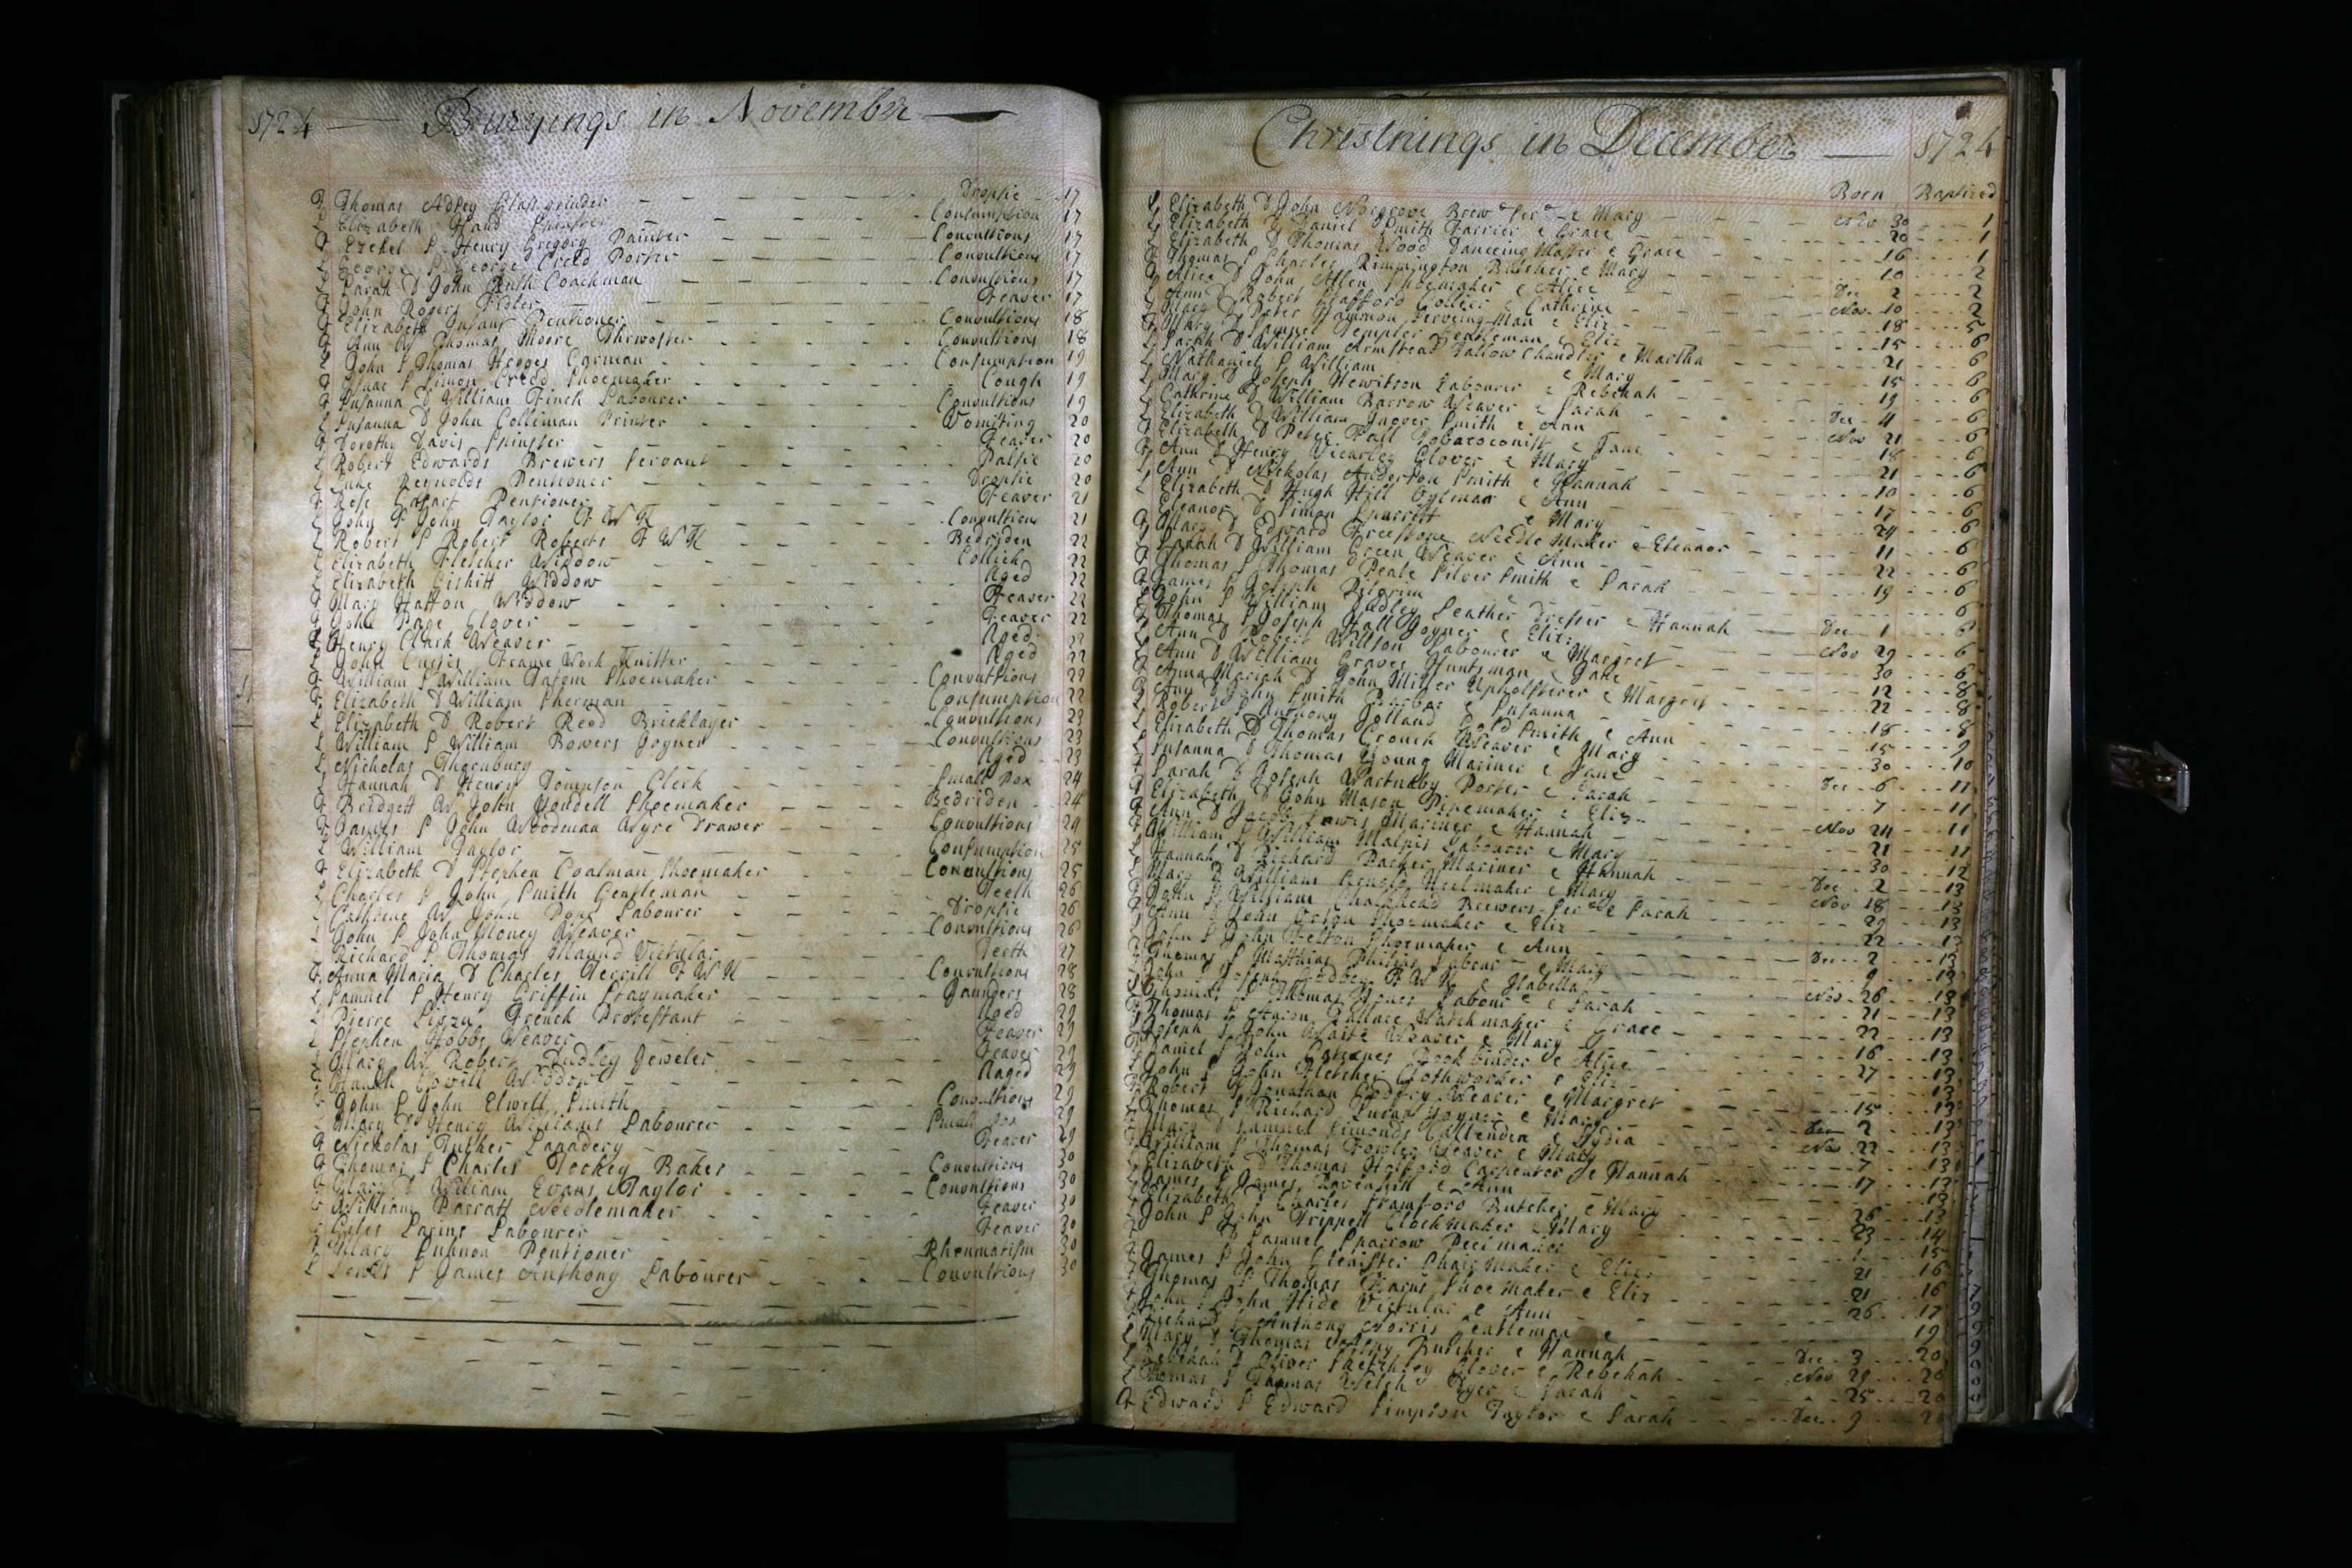 1724 — Buryings in November —
F Thomas Adsey Glassgrinder — Dropsie 17
L Elizabeth Hand Spinster — Consumption 17
F Ezekel S Henry Gregory Painter — Convultions 17
L George S George Creed Porter — Convultions 17
L Sarah D John Rush Coachman — Convultions 17
F John Rogers Fidler — Feaver 17
F Elizabeth Pentioner — Convultions 18
F Ann W Thomas Moore Throwster — Convultions 18
L John S Thomas Hedges Carman — Consumption 19
F Isaac S Simon Creed Shoemaker — Cough 19
F Susanna D William Finch Labourer — Convultions 19
L Susanna D John Colleman Printer — Vomitting 20
F Dorothy Davis Spinster — Feaver 20
L Robert Edwards Brewers Servant — Palsie 20
L Luke Reynolds Pentioner — Dropsie 20
F Rose Pentioner — Feaver 21
L John S John Taylor F W K — Convultions 21
L Robert S Robert Roberts F W K — Bedriden 22
L Elizabeth Fletcher Widdow — Collick 22
L Elizabeth Widdow — Aged 22
F Mary Hatton Widdow — Feaver 22
F John Page Glover — Feaver 22
L Henry Clark Weaver — Aged 22
L John Frame Work Knitter — Aged 22
F William S William Tatom Shoemaker — Convultions 22
F Elizabeth D William Sherman — Consumption 22
L Elizabeth D Robert Reed Bricklayer — Convultions 23
L William S William Bowers Joyner — Convultions 23
L Nicholas Thornbury — Aged 23
L Hannah D Henry Tompson Clerk — Small Pox 24
F Bridgett W John Yondell Shoemaker — Bedriden 24
F James S John Woodman Wyre Drawer — Convultions 24
L William Taylor — Consumption 25
F Elizabeth D Stephen Coalman Shoemaker — Convultions 25
L Charles S John Smith Gentleman — Teeth 26
L Cathrine W John Pope Labourer — Dropsie 26
L John S John Money Weaver — Convultions 26
L Richard S Thomas Maund Victular — Teeth 27
F Anna Maria D Charles Terrill F W K — Convultions 28
L Samuel S Henry Griffin Staymaker — Jaunders 28
L Pierre French Protestant — Aged 29
L Stephen Hobbs Weaver — Feaver 29
L Mary W Robert Dudley Jeweler — Feaver 29
F Sarah Cowill Widdow — Aged 29
F John S John Elwell Smith — Convultions 29
Mary D Henry Williams Labourer — Small Pox 29
F Nickolas Tucker — Feaver 29
F Thomas S Charles Tockey Baker — Convultions 30
F Mary D William Evans Taylor — Convultions 30
F William Parratt Needlemaker — Feaver 30
F Giles Larins Labourer — Feaver 30
F Mary Pentioner — Rheumatism 30
L Lewis S James Anthony Labourer — Convultions 30
Christnings in December — 1724
Born Baptized
L Elizabeth D John Norgrove Brewrs Servt e Mary — Nov 30 1
L Elizabeth D Daniel Smith Farrier e Grace — 20 1
L Elizabeth D Thomas Wood Danceing Master e Grace — 16 1
F Thomas S Charles Rimmington Butcher e Mary — 10 2
F Alice D John Allen Shoemaker e Alice — Dec 2 2
L Ann D Robert Stafford Collier e Cathrine — Nov 10 2
L Mary D Peter Hammon Serveing Man e Eliz — 18 5
F Mary D Samuel Templer Gentleman e Eliz — 15 6
L Sarah D William Armstead Tallow Chandler e Martha — 21 6
L Nathaniel S William e Mary — 15 6
L Mary D Joseph Hewitson Labourer e Rebekah — 19 6
L Cathrine D William Barrow Weaver e Sarah — Dec 4 6
L Elizabeth D William Smith e Ann — Nov 21 6
F Elizabeth D Peter Fall Tobaccoonist e Jane — 18 6
F Ann D Henry Viccarley Glover e Mary — 21 6
L Ann D Nickolas Anderton Smith e Hannah — 10 6
L Elizabeth D Hugh Hill Oylman e Ann — 17 6
Eleanor D Simon e Mary — 24 6
F Mary D Edward Freestone Needle Maker e Eleanor — 11 6
L Sarah D William Green Weaver e Ann — 22 6
F Thomas S Thomas Peale Silver Smith e Sarah — 19 6
F James S Joseph Pilgrim e — 6
F John S William Sadley Leather Dresser e Hannah — Dec 1 6
F Thomas S Joseph Hall Joyner e Eliz — Nov 29 6
L Ann D Robert Willson Labourer e Margret — 30 6
L Ann D William Graves Huntsman e Jane — 12 8
F Anna Mariah D John Miller Upholsterer e Margret — 22 8
F Ann D John Smith e Susanna — 18 8
L Robert S Anthony Jolland Gold Smith e Ann — 15 9
L Elizabeth D Thomas Crouch Weaver e Mary — 30 10
L Susanna D Thomas Young Mariner e Jane — Dec 6 11
L Sarah D Joseph Wartnaby Porter e Sarah — 7 11
F Elizabeth D John Mason Pipemaker e Eliz — Nov 24 11
F Ann D Jacob Lewis Mariner e Hannah — 21 11
F William S William Malpis Labourer e Mary — 30 12
L Hannah D Richard Packer Mariner e Hannah — Dec 2 13
L Mary D William Heelmaker e Mary — Nov 18 13
F John S William Brewers Servt e Sarah — 29 13
F Ann D John Shoemaker e Eliz — 22 13
L John S John Felton Shoemaker e Ann — Dec 2 13
F Thomas S Matthias Philips Labour e Mary — 9 13
L John S Joseph F W K e Isabella — Nov 26 13
Thomas S Thomas Jones Labour e Sarah — 21 13
F Thomas S Wallace Watchmaker e Grace — 22 13
L Joseph S John Waite Weaver e Mary — 16 13
F Daniel S John Bookbinder e Alice — 27 13
L John S John Fletcher Clothworker e Eliz — 13
F Robert S Jonathan Weaver e Margret — 15 13
Thomas S Richard Joyner e Mary — Dec 2 13
F Mary D Samuel Simonds Callender e Lydia — Nov 22 13
William S Thomas Fowler Weaver e Mary — 7 13
L Elizabeth D Thomas Holford Carpenter e Hannah — 17 13
L James S James Ravenhill e Ann — 13
F Elizabeth D Charles Bramford Butcher e Mary — 26 13
L John S John Trippett Clockmaker e Mary — 23 14
D Samuel Sparrow — 1 15
L James S John Chair Maker e Eliz — 21 16
L Thomas S Thomas Shoemaker e Eliz — 21 16
F John S John Hide Victular e Ann — 26 17
L Richard S Anthony Norris Gentleman e — 19
L Mary D Thomas Butcher e Hannah — Dec 3 20
L Rebekah D Oliver Glover e Rebekah — Nov 29 20
L Thomas S Thomas Welch Dyer e Sarah — 25 20
F Edward S Edward Simpson Taylor e Sarah — Dec 9 20